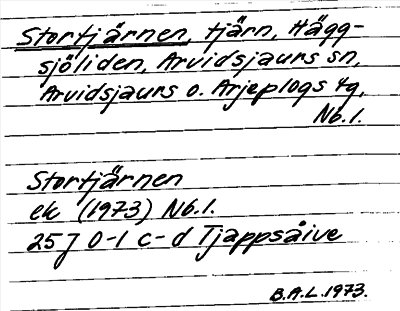 Stortjärnen, tjärn, Hägg-
sjöliden, Arvidsjaurs sn,
Arvidsjaurs o. Arjeplogs tg,
Nb.l.
Stortjärnen
ek (1973) Nb.l.
25 J 0-1 c-d Tjappsåive
B.A.L. 1973.